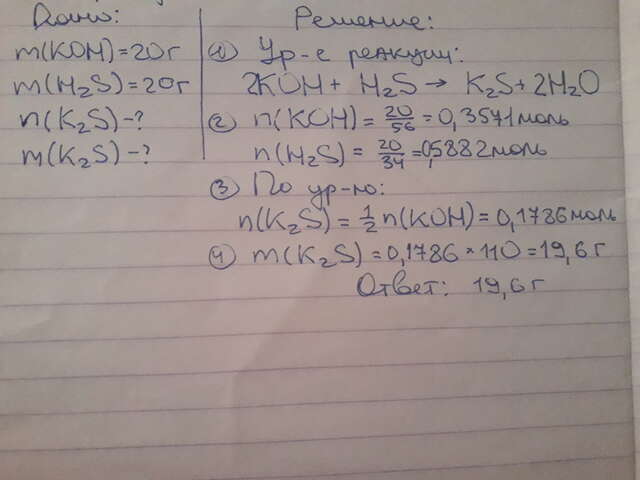 Дано:
m(KOH)=20г
m(H₂S)=20г
n(K₂S)-?
m(K₂S)-?
Решение:
① Ур-е реакции:
2KOH + H₂S → K₂S + 2H₂O
② n(KOH) = 20/56 = 0,3571моль
n(H₂S) = 20/34 = 05882моль
③ По ур-ю:
n(K₂S) = 1/2 n(KOH) = 0,1786моль
④ m(K₂S) = 0,1786*110 = 19,6г
Ответ: 19,6г